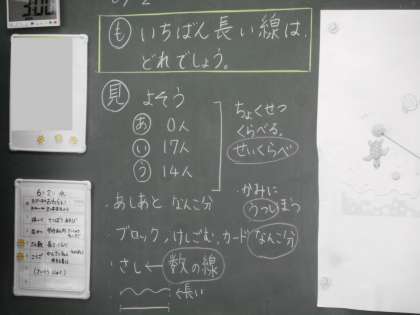 3:00
6/2
も いちばん長い線は、
どれでしょう。
見 よそう
あ 0人
い 17人
う 14人
ちょくせつ
くらべる。
せいくらべ
・あしあと なんこ分
・かみに
うつしほう
ブロック、けしごむ、カード なんこ分
さし ← 数の線
←長い
6 2 水